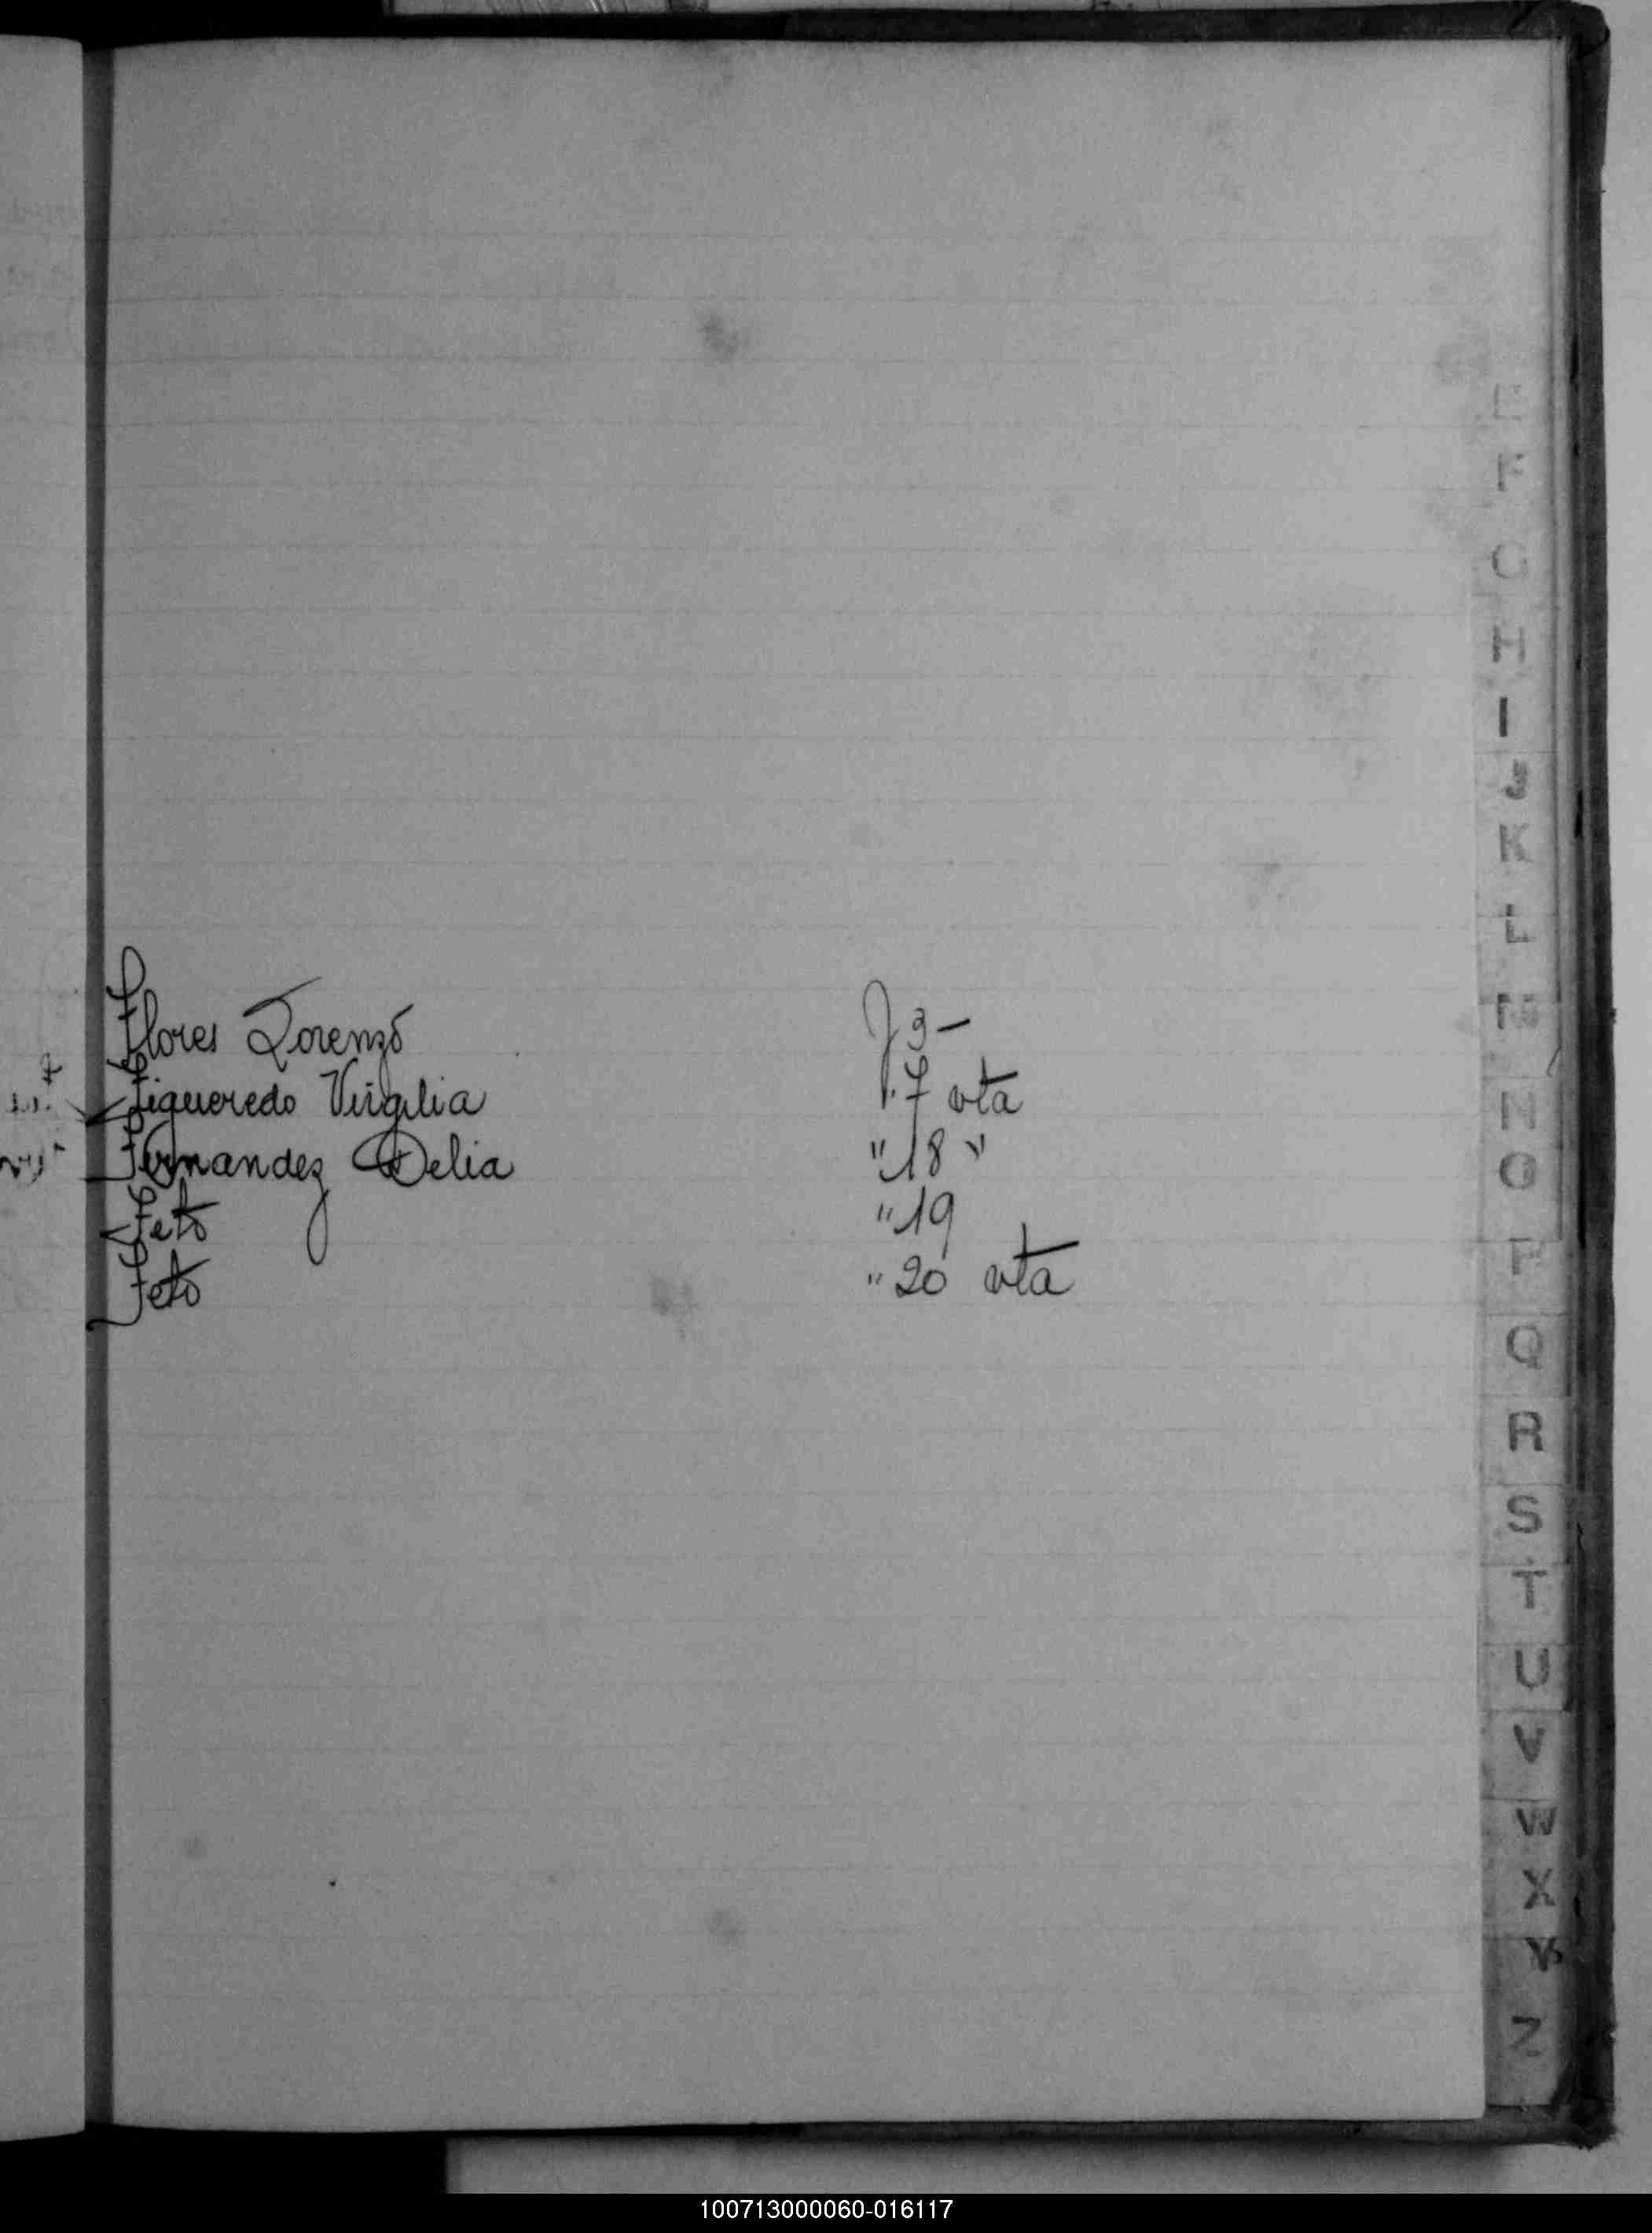 Flores Lorenzo
Figueredo Virgilia
Fernandez Delia
Feto
Feto
3 -
" 7 vta
" 18 "
" 19
" 20 vta
E
F
G
H
I
J
K
L
M
N
O
P
Q
R
S
T
U
V
W
X
Y
Z
100713000060-016117